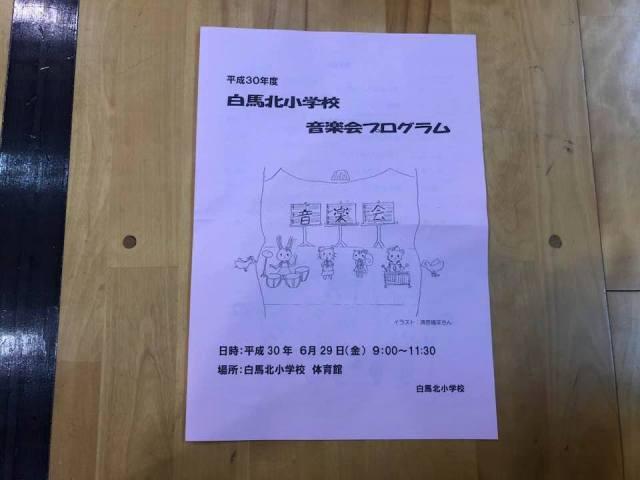 平成30年度
白馬北小学校
音楽会プログラム
音 楽 会
イラスト：
日時：平成 30 年 6月 29 日（金） 9:00～11:30
場所：白馬北小学校 体育館
白馬北小学校